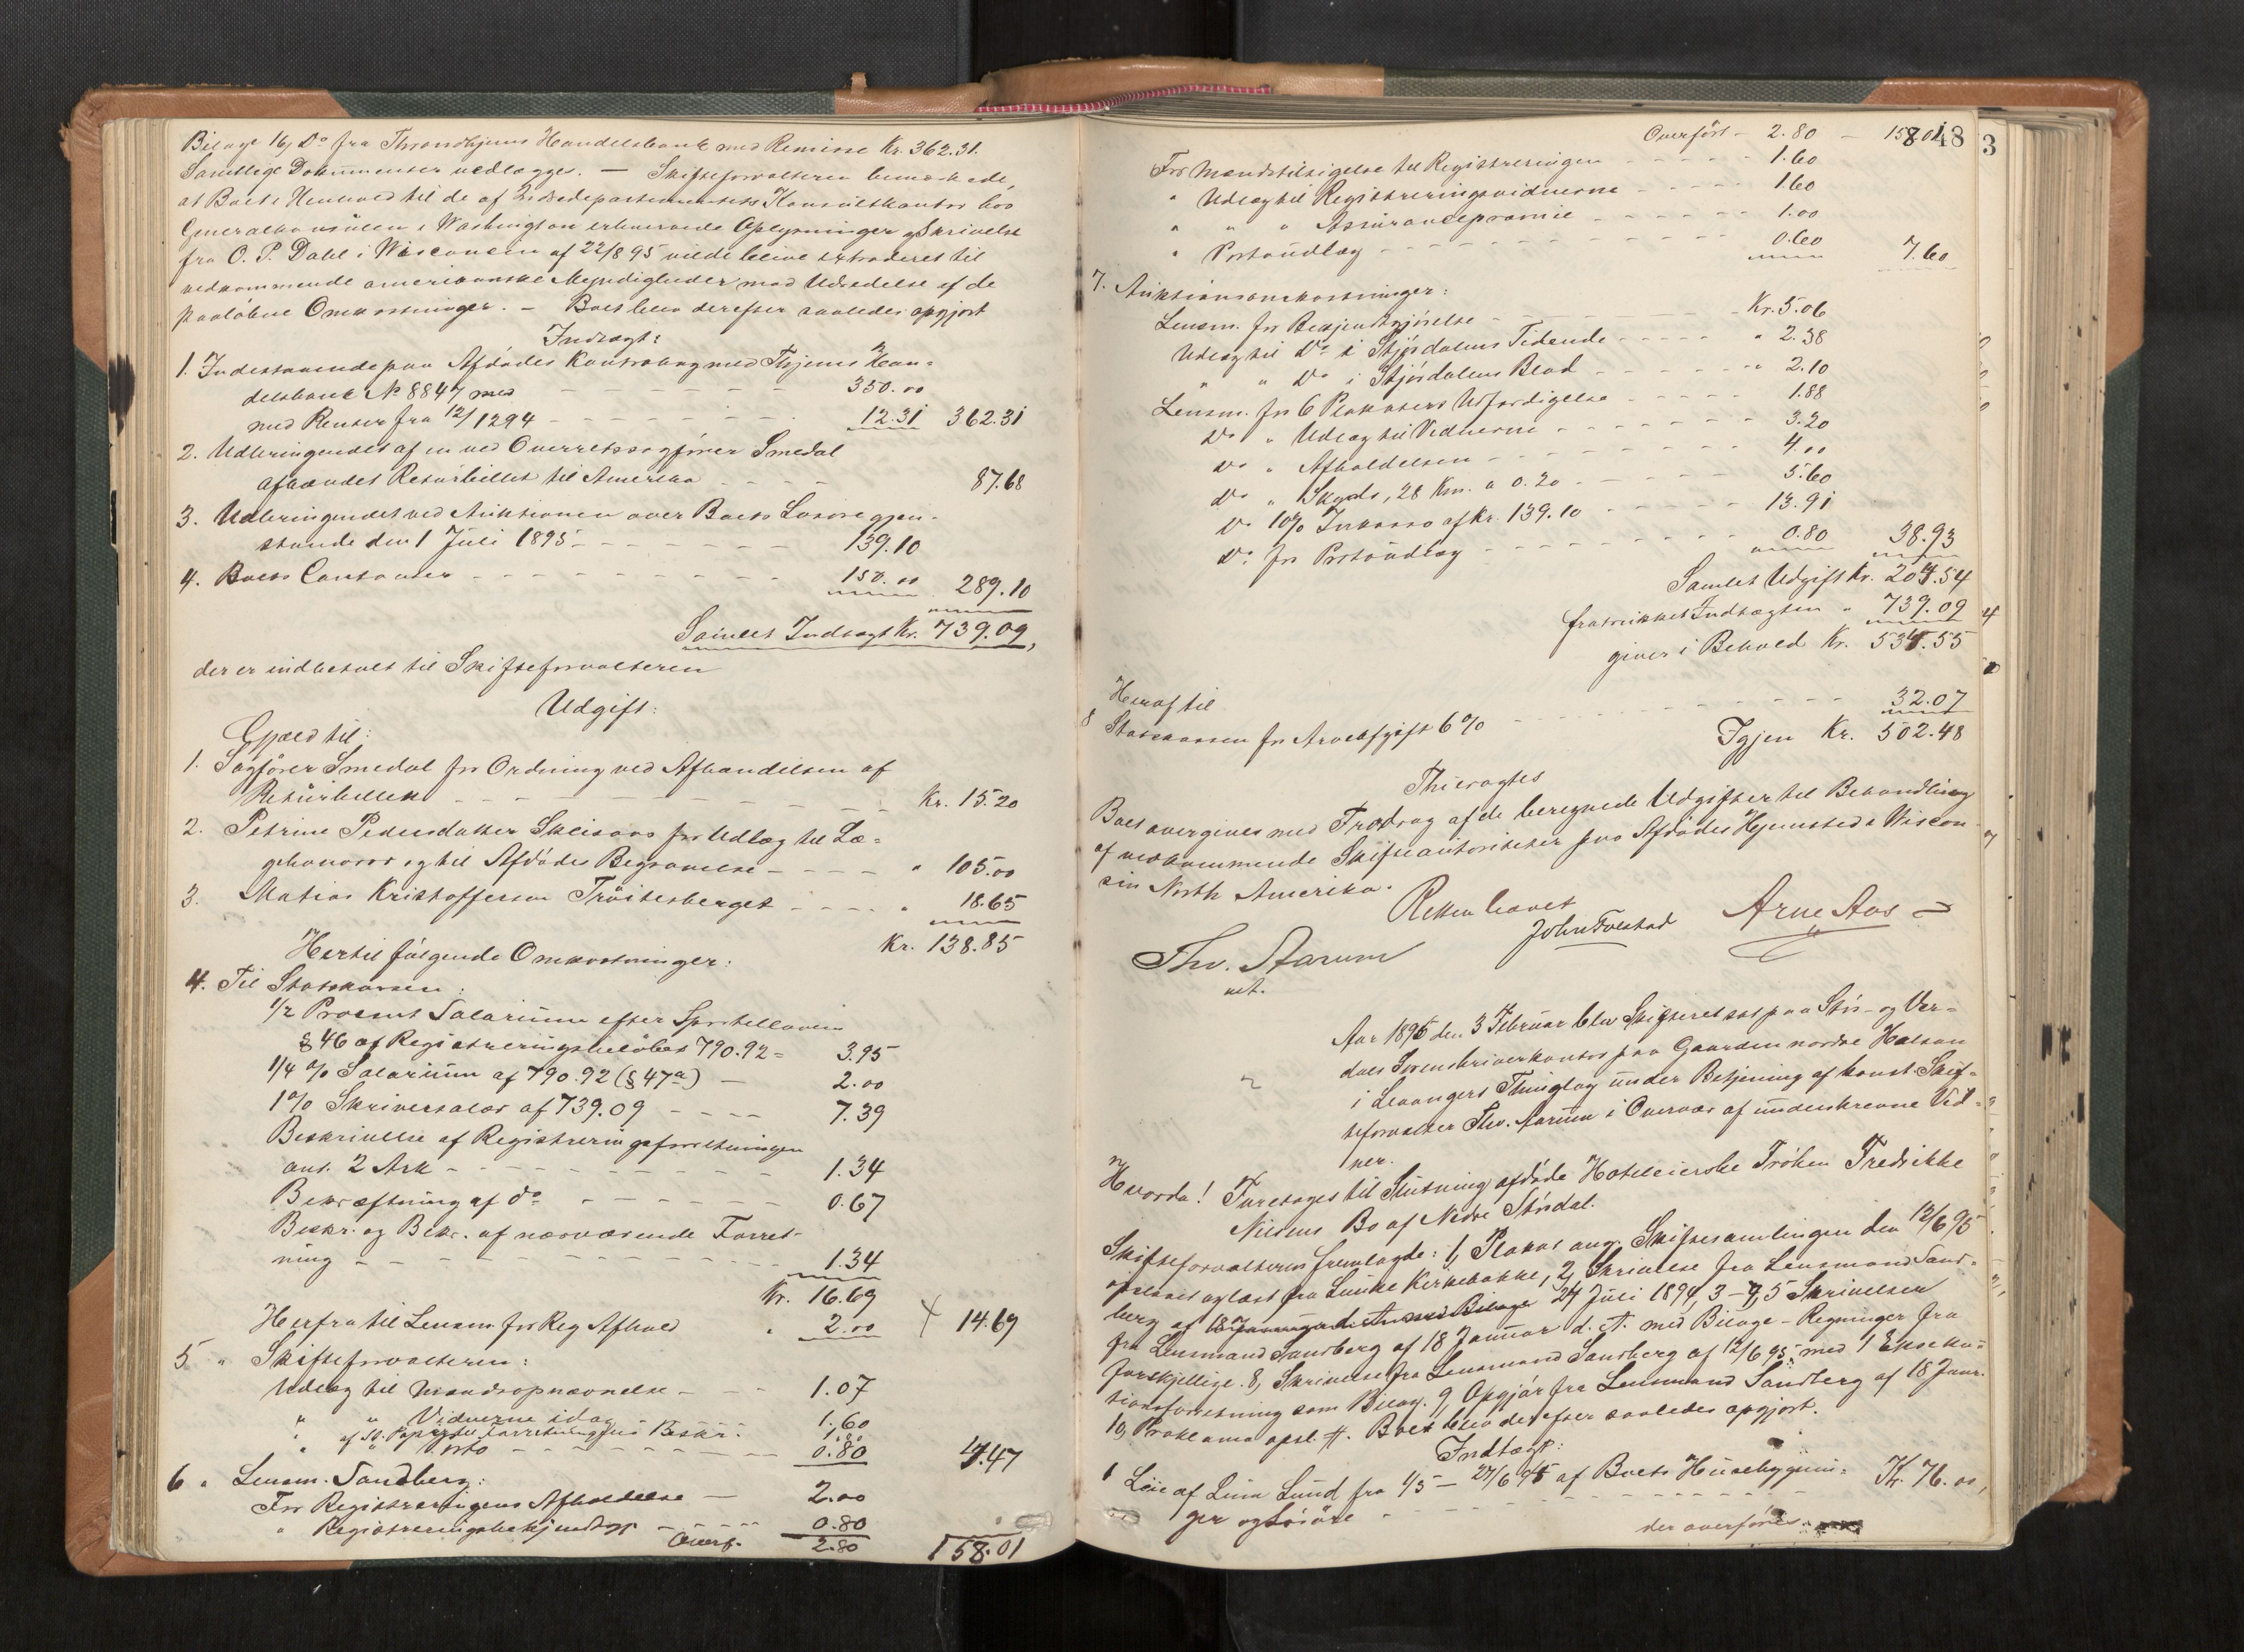 Bilage 16, Do fra Throndhjems Handelsbank med Remisse Kr. 362.31.
Samtlige Dokumenter vedlægges. — Skifteforvalteren bemærkede,
at Boet i Henhold til de af Indredepartementets Konsulatkontor hos
Generalkonsulen i Washington erhvervede Oplysninger og Skrivelse
fra O. P. Dahl i Wisconsin af 22/8 95 vilde blive extraderet til
vedkommende amerikanske Myndigheder mod Udredelse af de
paaløbne Omkostninger. — Boet blev derefter saaledes opgjort
Indtægt:
1. Indestaaende paa Afdødes Kontrabog med Thjems Han-
delsbank No 8847 med — 350.00
med Renter fra 12/12 94 — 12.31 362.31
2. Udbringendet af en ved Overretssagfører Smedal
afhændet Returbillet til Amerika — 87.68
3. Udbringendet ved Auktionen over Boets Løsøregjen-
stande den 1 Juli 1895 — 139.10
4. Boets Contanter — 150.00 289.10
Samlet Indtægt Kr. 739.09,
der er indbetalt til Skifteforvalteren
Udgift:
Gjæld til:
1. Sagfører Smedal for Ordning ved Afhændelsen af
Returbillet — Kr. 15.20
2. Petrine Pedersdatter for Udlæg til Læ-
gehonorar og til Afdødes Begravelse — " 105.00
3. Matias Kristoffersen Trøitesberget — " 18.65
Kr. 138.85
Hertil følgende Omkostninger:
4. Til Statskassen:
1/2 Procent Salarium efter Sportelloven
§ 46 af Registreringsbeløbet 790.92 = 3.95
1/4 % Salarium af 790.92 (§ 47a) — 2.00
1 % Skriversalær af 739.09 — 7.39
Beskrivelse af Registreringsforretningen
ant. 2 Ark — 1.34
Bekræftning af do — 0.67
Beskr. og Bekr. af nærværende Forret-
ning — 1.34
Kr. 16.69
Herfra til Lensm. for Reg Afhold " 2.00 14.69
5 " Skifteforvalteren:
Udlæg til Mændsopnævnelse — 1.07
" " Vidnerne idag 1.60
" Porto — 0.80 4.47
6 " Lensm. Sandberg:
For Registreringens Afholdelse — 2.00
" Registreringsbekjendtgj. — 0.80
Overf. 2.80 158.01
48
3
Overført — 2.80 — 158.01
For Mændstilsigelse til Registreringen — 1.60
" Udlæg til Registreringsvidnerne — 1.60
" " " Assurancepræmie — 1.00
" Portoudlæg — 0.60 7.60
7. Auktionsomkostninger:
Lensm. for Bekjendtgjørelse — Kr. 5.06
Udlæg til Do i Stjørdalens Tidende — " 2.38
" " Do i Stjørdalens Blad — " 2.10
Lensm. for 6 Plakaters Udfærdigelse — 1.88
Do " Udlæg til Vidnerne — 3.20
Do " Afholdelsen — 4.00
Do " Skyds, 28 Km. a 0.20 — 5.60
Do 10% Inkasso af Kr. 139.10 — 13.91
Do for Portoudlæg — 0.80 38.93
Samlet Udgift Kr. 204.54
fratrukket Indtægten " 739.09
giver i Behold Kr. 534.55
Heraf til
8 Statskassen for Arveafgift 6% — 32.07
Igjen Kr. 502.48
Thi eragtes
Boet overgives med Fradrag af de beregnede Udgifter til Behandling
af vedkommende Skifteautoriteter paa Afdødes Hjemsted i Wiscon-
sin North Amerika.
Retten hævet
Thv. Aarum
cst.
John Folstad
Arne Aas
Aar 1896 den 3 Februar blev Skifteret sat paa Stør- og Vær-
dals Sorenskriverkontor paa Gaarden nordre Halsan
i Levangers Thinglag under Betjening af konst. Skif-
teforvalter Thv. Aarum i Overvær af underskrevne Vid-
ner.
Hvorda! Foretoges til Slutning afdøde Hoteleierske Frøken Fredrikke
Nilsens Bo af Nedre Stjørdal.
Skifteforvalteren fremlagde: 1, Plakat ang. Skiftesamlingen den 12/6 95
oplæst fra Lånke Kirkebakke, 2, Skrivelse fra Lensmand Sand-
berg af 24 Juli 1894, 3-4, 5 Skrivelsen
fra Lensmand Sandberg af 18 Januar d. A. med Bilage - Regninger fra
forskjellige. 8, Skrivelse fra Lensmand Sandberg af 12/6 95 med 1 Exseku-
tionsforretning som Bilag. 9, Opgjør fra Lensmand Sandberg af 18 Janr.
10, Proklama opl. Boet blev derefter saaledes opgjort.
Indtægt:
1 Leie af Lina Lund fra 1/5 — 24/6 95 af Boets Husebygnin-
ger og Løsøre — Kr. 76.00,
der overføres.